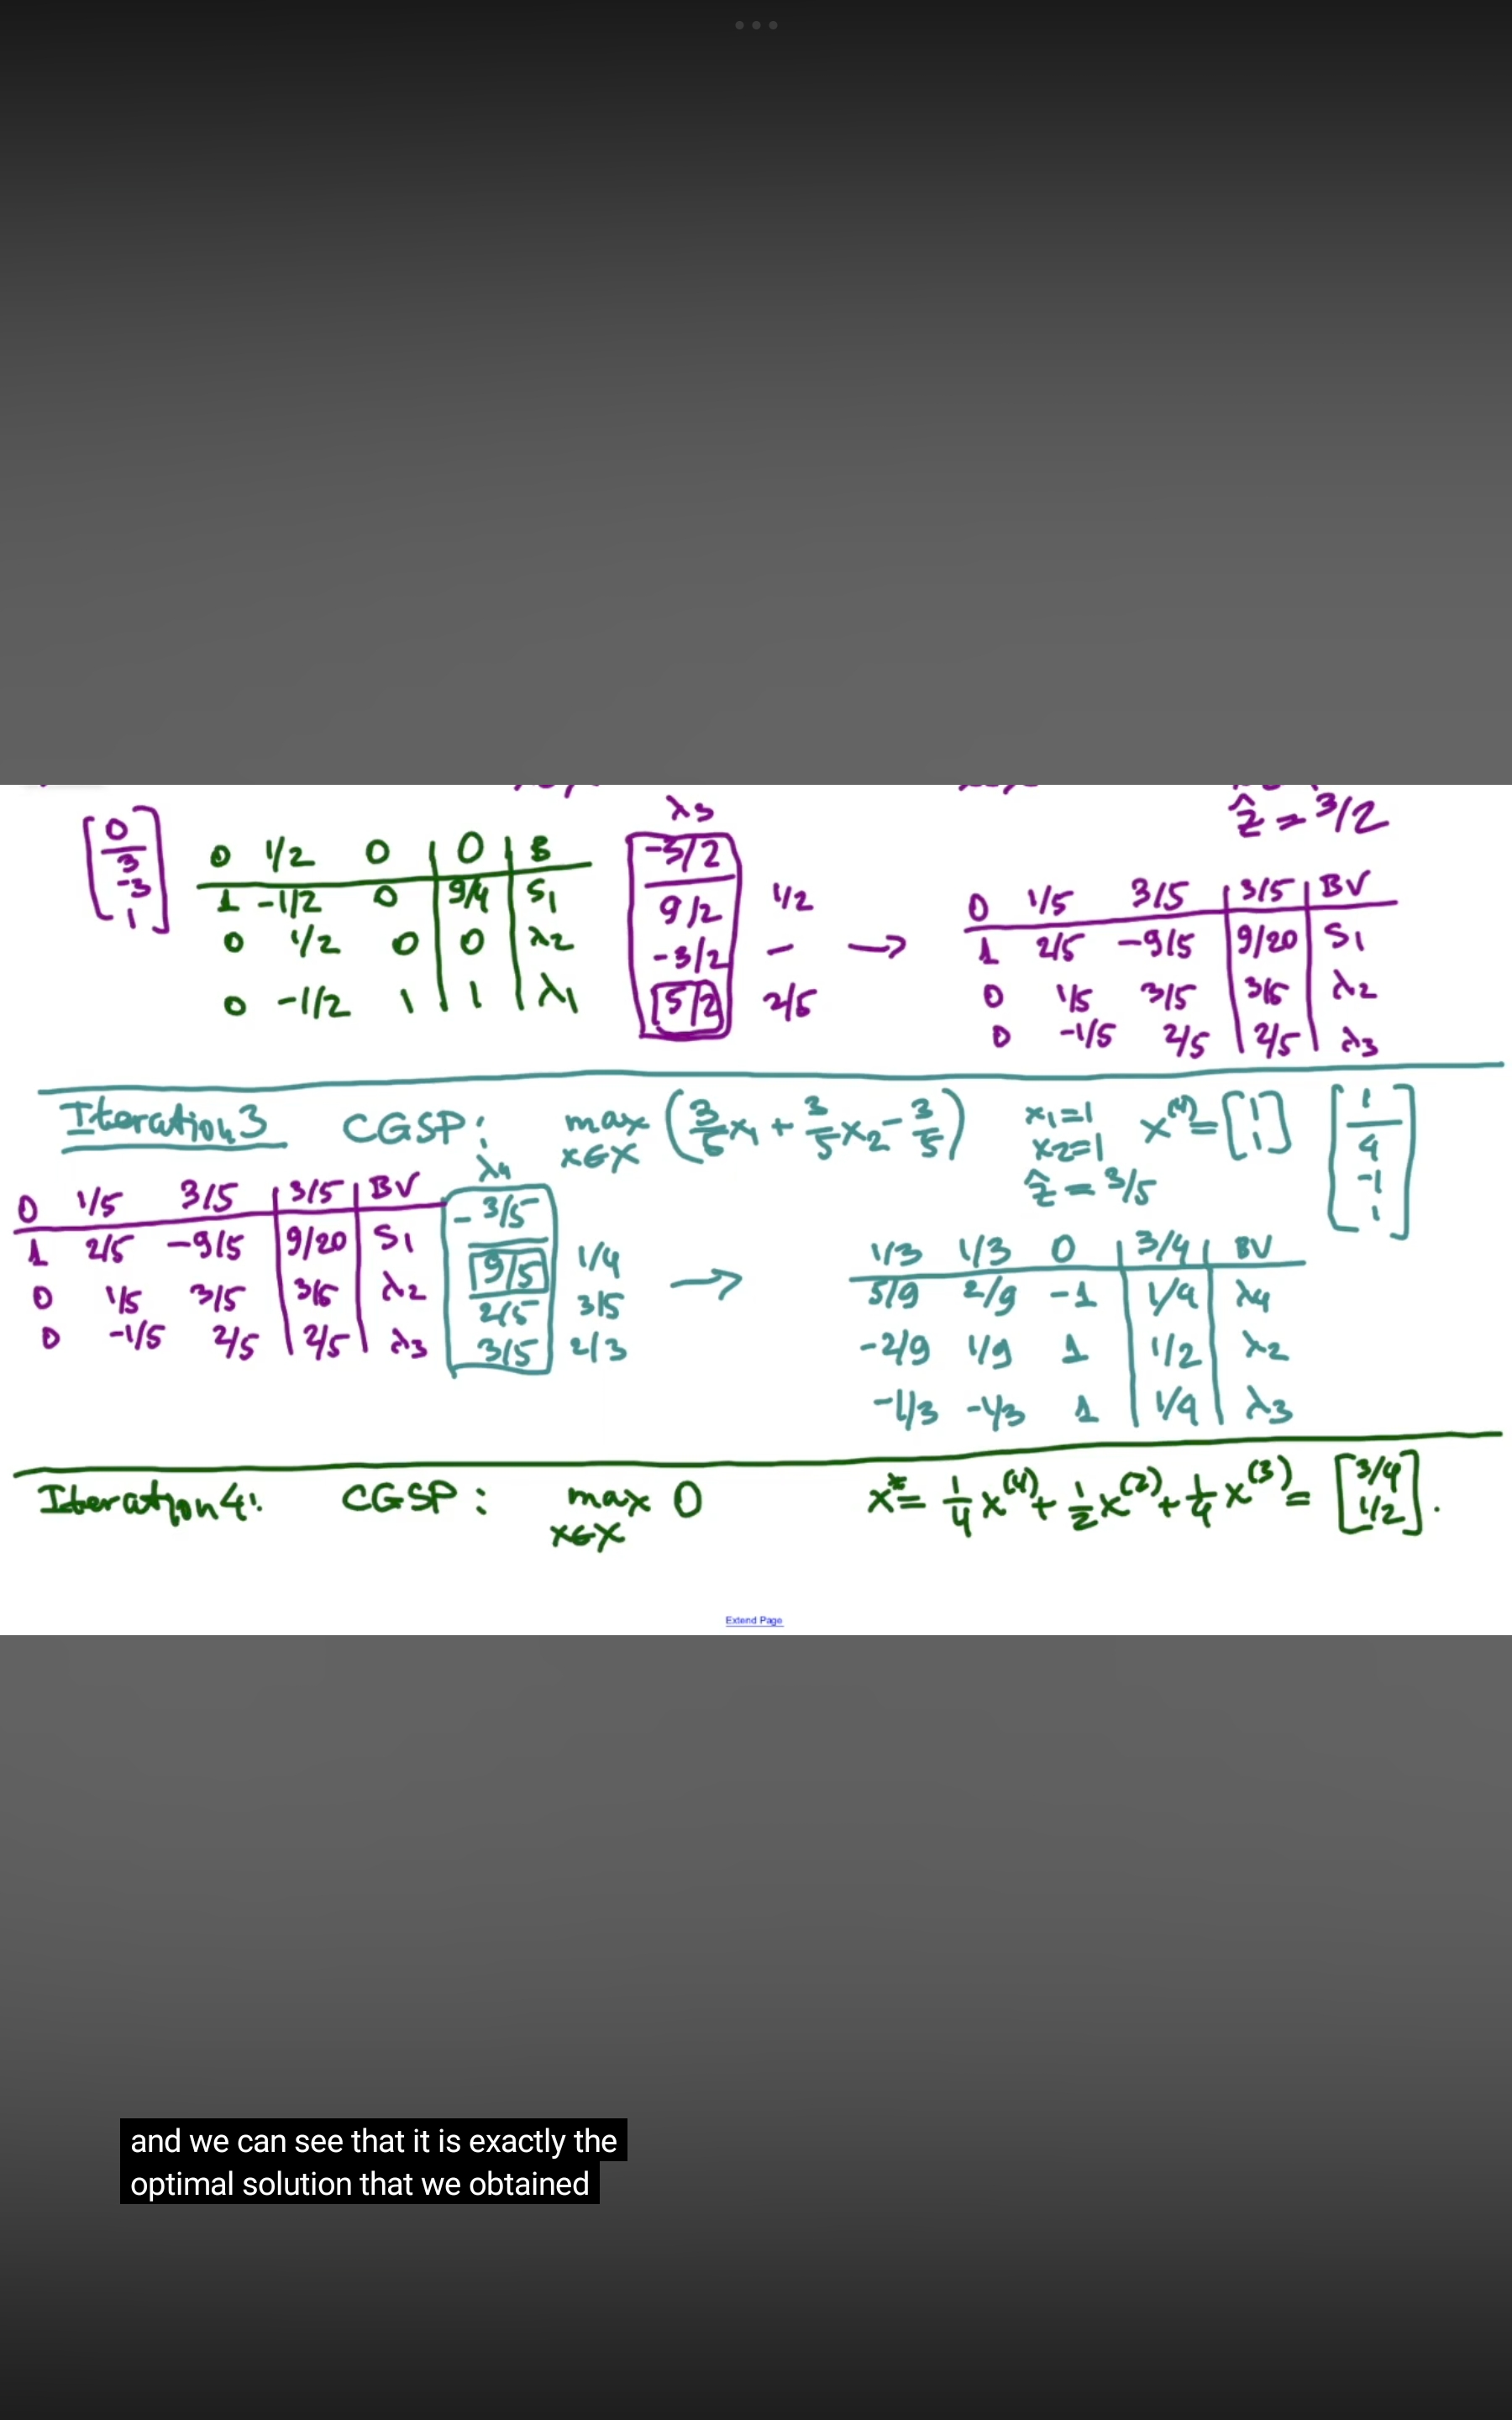 λ3
ẑ = 3/2
[0 / 3 / -3 / 1]
0 1/2 0 | 0 | B
1 -1/2 0 | 9/4 | S1
0 1/2 0 | 0 | λ2
0 -1/2 1 | 1 | λ1
-3/2
9/2 1/2
-3/2 -
5/2 2/5
→
0 1/5 3/5 | 3/5 | BV
1 2/5 -9/5 | 9/20 | S1
0 1/5 3/5 | 3/5 | λ2
0 -1/5 2/5 | 2/5 | λ3
Iteration 3 CGSP: max x∈X (3/5 x1 + 3/5 x2 - 3/5)
x1=1
x2=1
ẑ = 3/5
x(4) = [1 / 1]
[1 / 4 / -1 / 1]
0 1/5 3/5 | 3/5 | BV
1 2/5 -9/5 | 9/20 | S1
0 1/5 3/5 | 3/5 | λ2
0 -1/5 2/5 | 2/5 | λ3
λ4
-3/5
9/5 1/4
2/5 3/5
3/5 2/3
→
1/3 1/3 0 | 3/4 | BV
5/9 2/9 -1 | 1/4 | λ4
-2/9 1/9 1 | 1/2 | λ2
-1/3 -1/3 1 | 1/4 | λ3
Iteration 4: CGSP: max x∈X 0 x* = 1/4 x(4) + 1/2 x(2) + 1/4 x(3) = [3/4 / 1/2].
Extend Page
and we can see that it is exactly the
optimal solution that we obtained